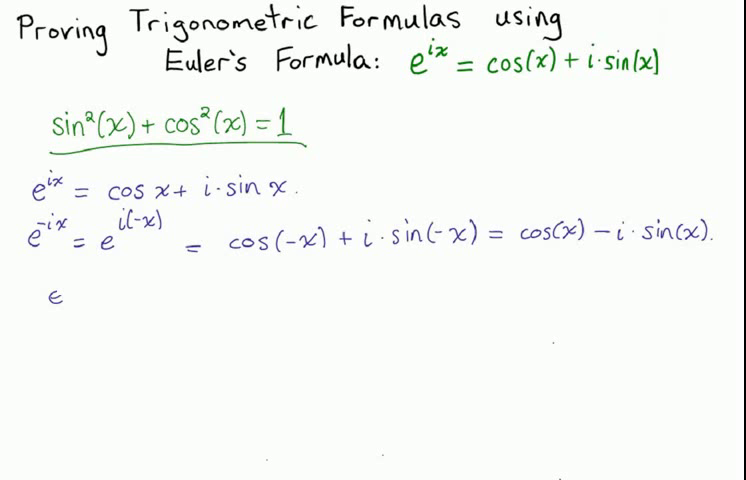 Proving Trigonometric Formulas using
Euler's Formula: e^{ix} = cos(x) + i·sin(x)
sin²(x) + cos²(x) = 1
e^{ix} = cos x + i·sin x.
e^{-ix} = e^{i(-x)} = cos(-x) + i·sin(-x) = cos(x) - i·sin(x).
e